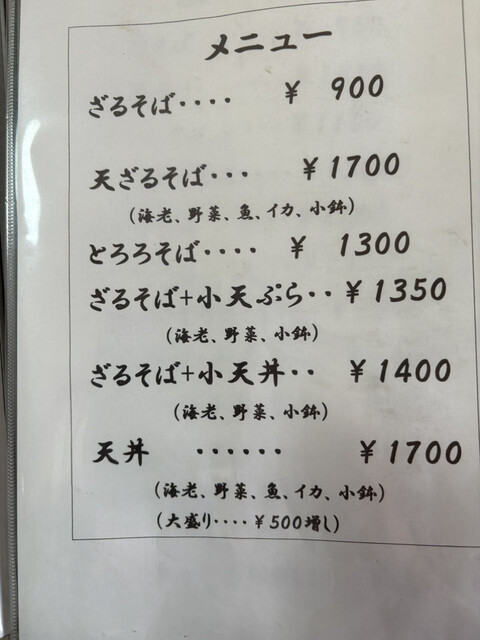 メニュー
ざるそば････ ¥ 900
天ざるそば･･･ ¥1700
(海老、野菜、魚、イカ、小鉢)
とろろそば････ ¥ 1300
ざるそば+小天ぷら･･ ¥1350
(海老、野菜、小鉢)
ざるそば+小天丼･･ ¥1400
(海老、野菜、小鉢)
天丼 ･･････ ¥1700
(海老、野菜、魚、イカ、小鉢)
(大盛り････¥500増し)